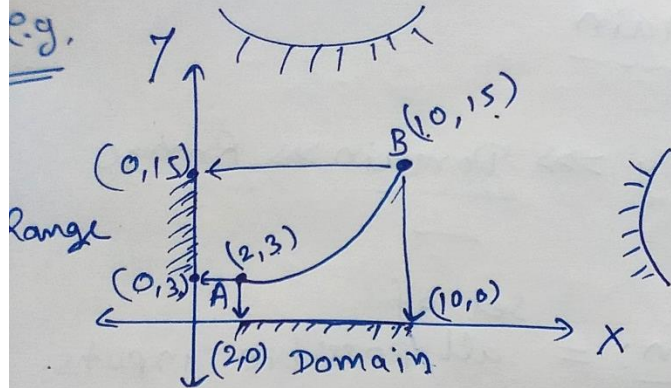 e.g.
Y
B (10, 15)
(0, 15)
Range
(2, 3)
(0, 3)
A
(10, 0)
X
(2, 0) Domain